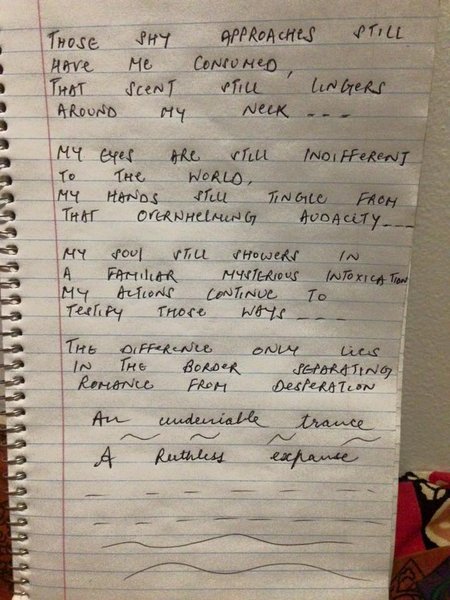 THOSE SHY APPROACHES STILL
HAVE ME CONSUMED,
THAT SCENT STILL LINGERS
AROUND MY NECK ---
MY EYES ARE STILL INDIFFERENT
TO THE WORLD,
MY HANDS STILL TINGLE FROM
THAT OVERWHELMING AUDACITY---
MY SOUL STILL SHOWERS IN
A FAMILIAR MYSTERIOUS INTOXICATION
MY ACTIONS CONTINUE TO
TESTIFY THOSE WAYS ----
THE DIFFERENCE ONLY LIES
IN THE BORDER SEPARATING
ROMANCE FROM DESPERATION
An undeniable trance
A Ruthless expanse